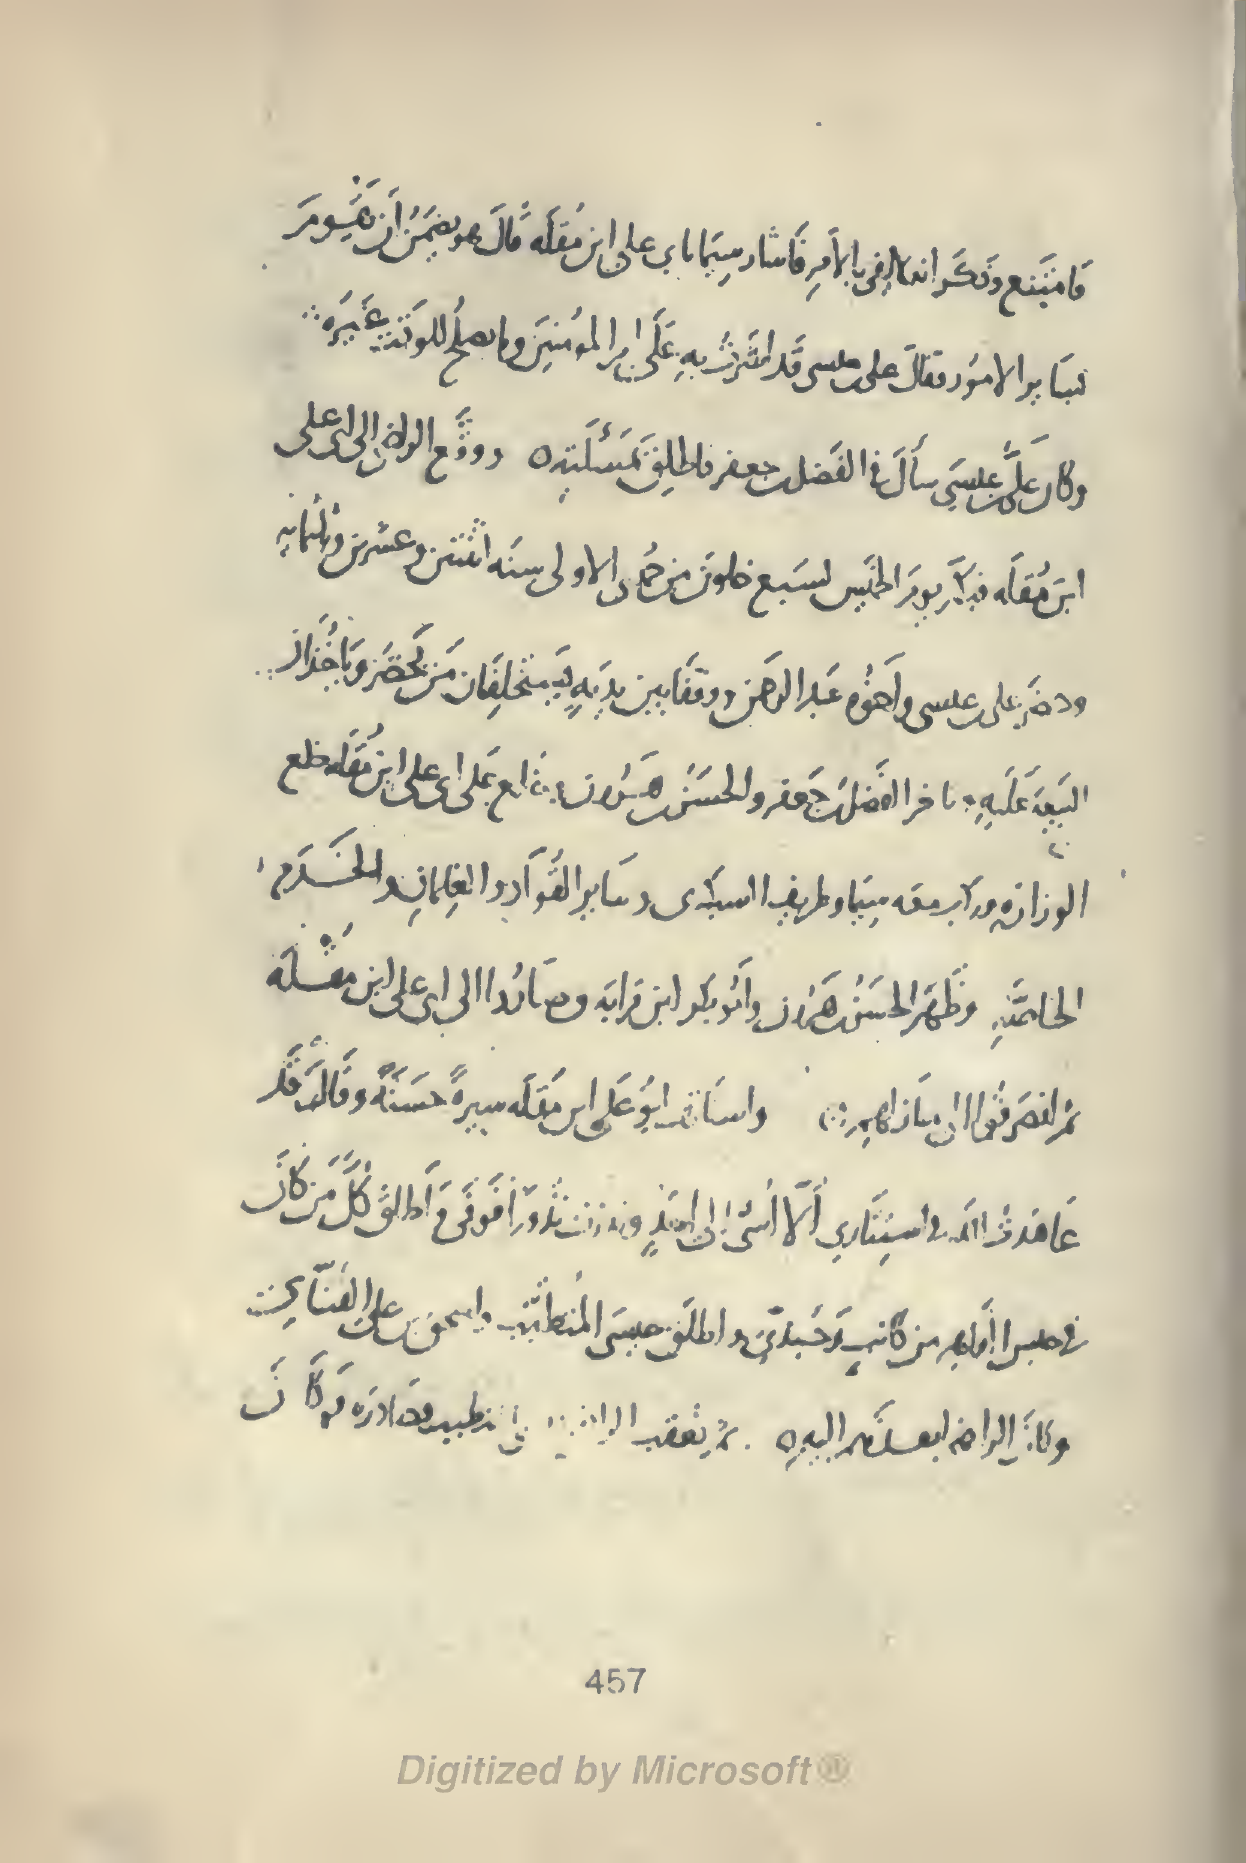 فامتنع وذكر انه لا يفى بالامر فاشار سيما باى على ابن مُقلَه قَالَ هو يضمَنُ أن يَقوم
بسَاير الامُور فقالَ على عيسى قَد اشَرتُ بهِ عَلَى امير المومنينَ وما يصلُح للوقت غَيرَه
وكان عَلى عِيسَى سأَلَ فى الفَضل جعفر فاطلِق بمَسئَلَتِه ووَقَّع الراضى الى ابى على
ابن مُقلَه فبكّر يومَ الخميس لسَبع خلونَ من جُمدى الاولى سنَه اثنتين وعشرين وثلثمايه
وحضَر على عيسى واخوُه عَبد الرحمَن ووقفَا بين يديهِ يستحلِفَان مَن يحضَر ويَاخُذان
البَيعَة عَلَيهِ الفَضل جَعفر والحسَنُ هَرون عَلى ابى على ابن مُقلَه خلع
الوزارَه وركب معَه سيما وطريف السبكرى وسَاير القُوَّاد والغِلمانِ والخَدَم
الخاصّهِ وظَهَر الحسَنُ هَرون وأبُو بكر ابن قرابَه وصَارُوا الى ابى على ابن مقُلَه
ثم انصَرفُوا الى منَازلهم واستَانف ابوُ عَلى ابن مُقلَه سيرةً حسَنَةً وقَالَ قَد
عَاهَدتُ اللهَ فى استِتَاري أَلَّا أُسئَ الى احَدٍ ونذرت نُذورًا فوفَى وَأَطلقَ كُلَّ مَن كَانَ
فى حبس القَاهر من كاتبٍ وَجُندىّ واطلَق عيسَى المُتطَبّب واسحق على القُنّاى
وكانَ الراضى ثم تعقب الراضى بطبيب فصَادرَه وَكَانَ
457
Digitized by Microsoft®